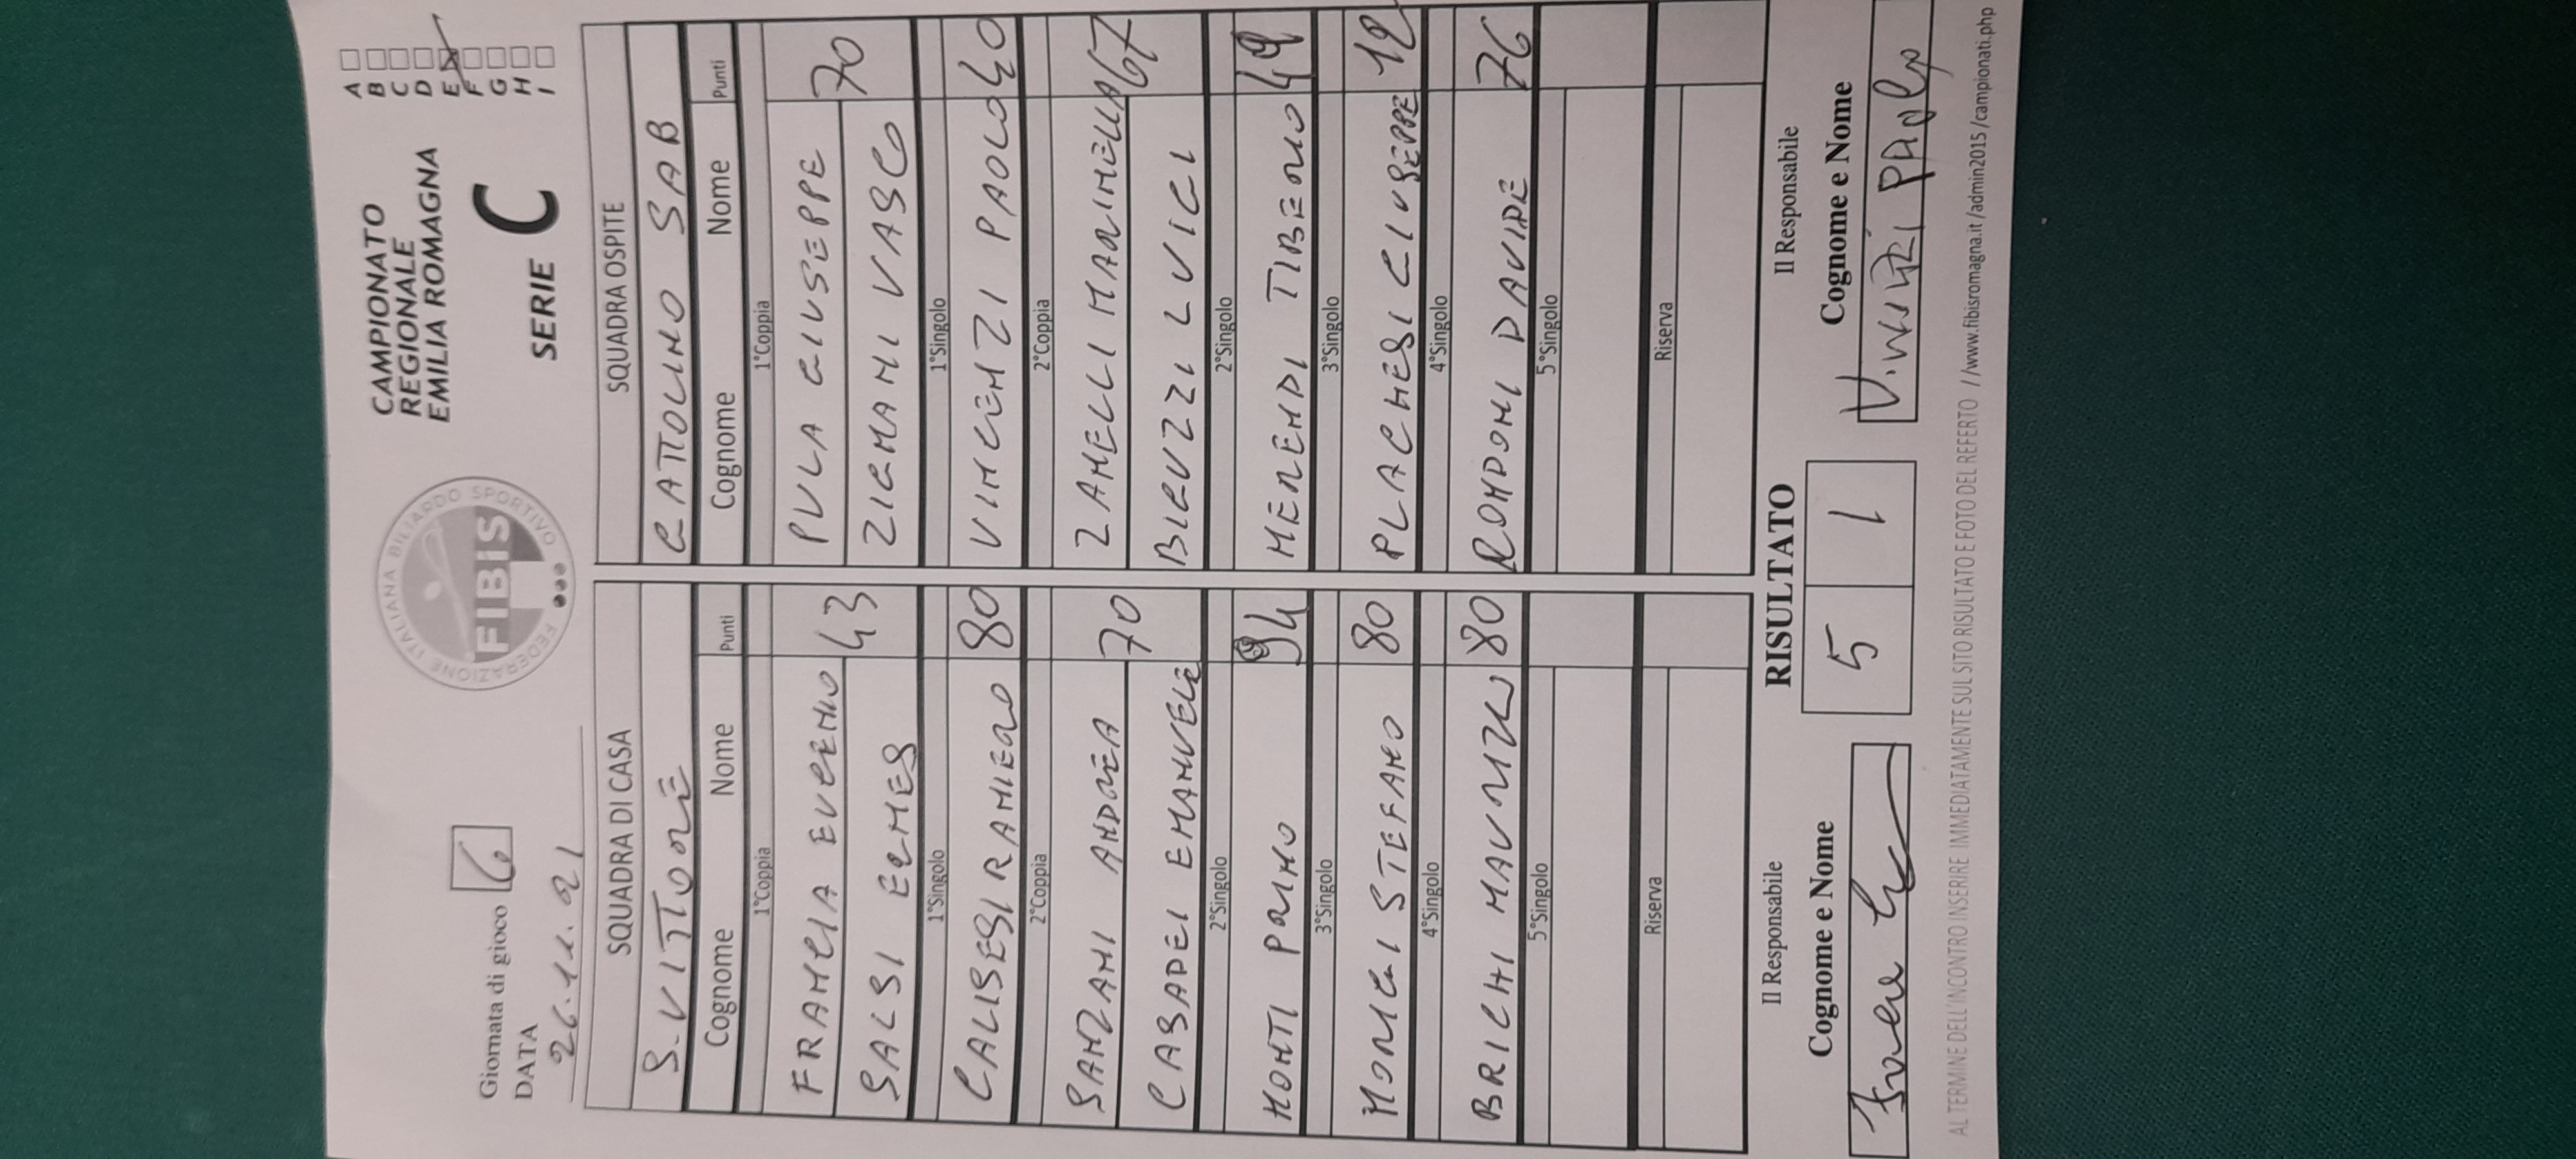 Giornata di gioco 6
DATA
26.11.21
FEDERAZIONE ITALIANA BILIARDO SPORTIVO
FIBiS
CAMPIONATO
REGIONALE
EMILIA ROMAGNA
SERIE C
A
B
C
D
E
F
G
H
I
SQUADRA DI CASA
S.VITTORE
Cognome Nome Punti
1°Coppia
FRANCIA EUGENIO 43
SALSI ERMES
1°Singolo
CALISESI RANIERO 80
2°Coppia
SANZANI ANDREA 70
CASADEI EMANUELE
2°Singolo
MONTI PRIMO 94
3°Singolo
MONGI STEFANO 80
4°Singolo
BRICHI MAURIZIO 80
5°Singolo
Riserva
SQUADRA OSPITE
CATTOLINO SAB
Cognome Nome Punti
1°Coppia
PULA GIUSEPPE 70
ZIGNANI VASCO
1°Singolo
VINCENZI PAOLO 40
2°Coppia
ZANELLI MARINELLA 67
BIGUZZI LUIGI
2°Singolo
MERENDI TIBERIO 49
3°Singolo
PLACHESI GIUSEPPE 12
4°Singolo
RONDONI DAVIDE 76
5°Singolo
Riserva
Il Responsabile
Cognome e Nome
RISULTATO
5 1
Il Responsabile
Cognome e Nome
Vincenzi PAOLO
AL TERMINE DELL'INCONTRO INSERIRE IMMEDIATAMENTE SUL SITO RISULTATO E FOTO DEL REFERTO //www.fibisromagna.it /admin2015 /campionati.php